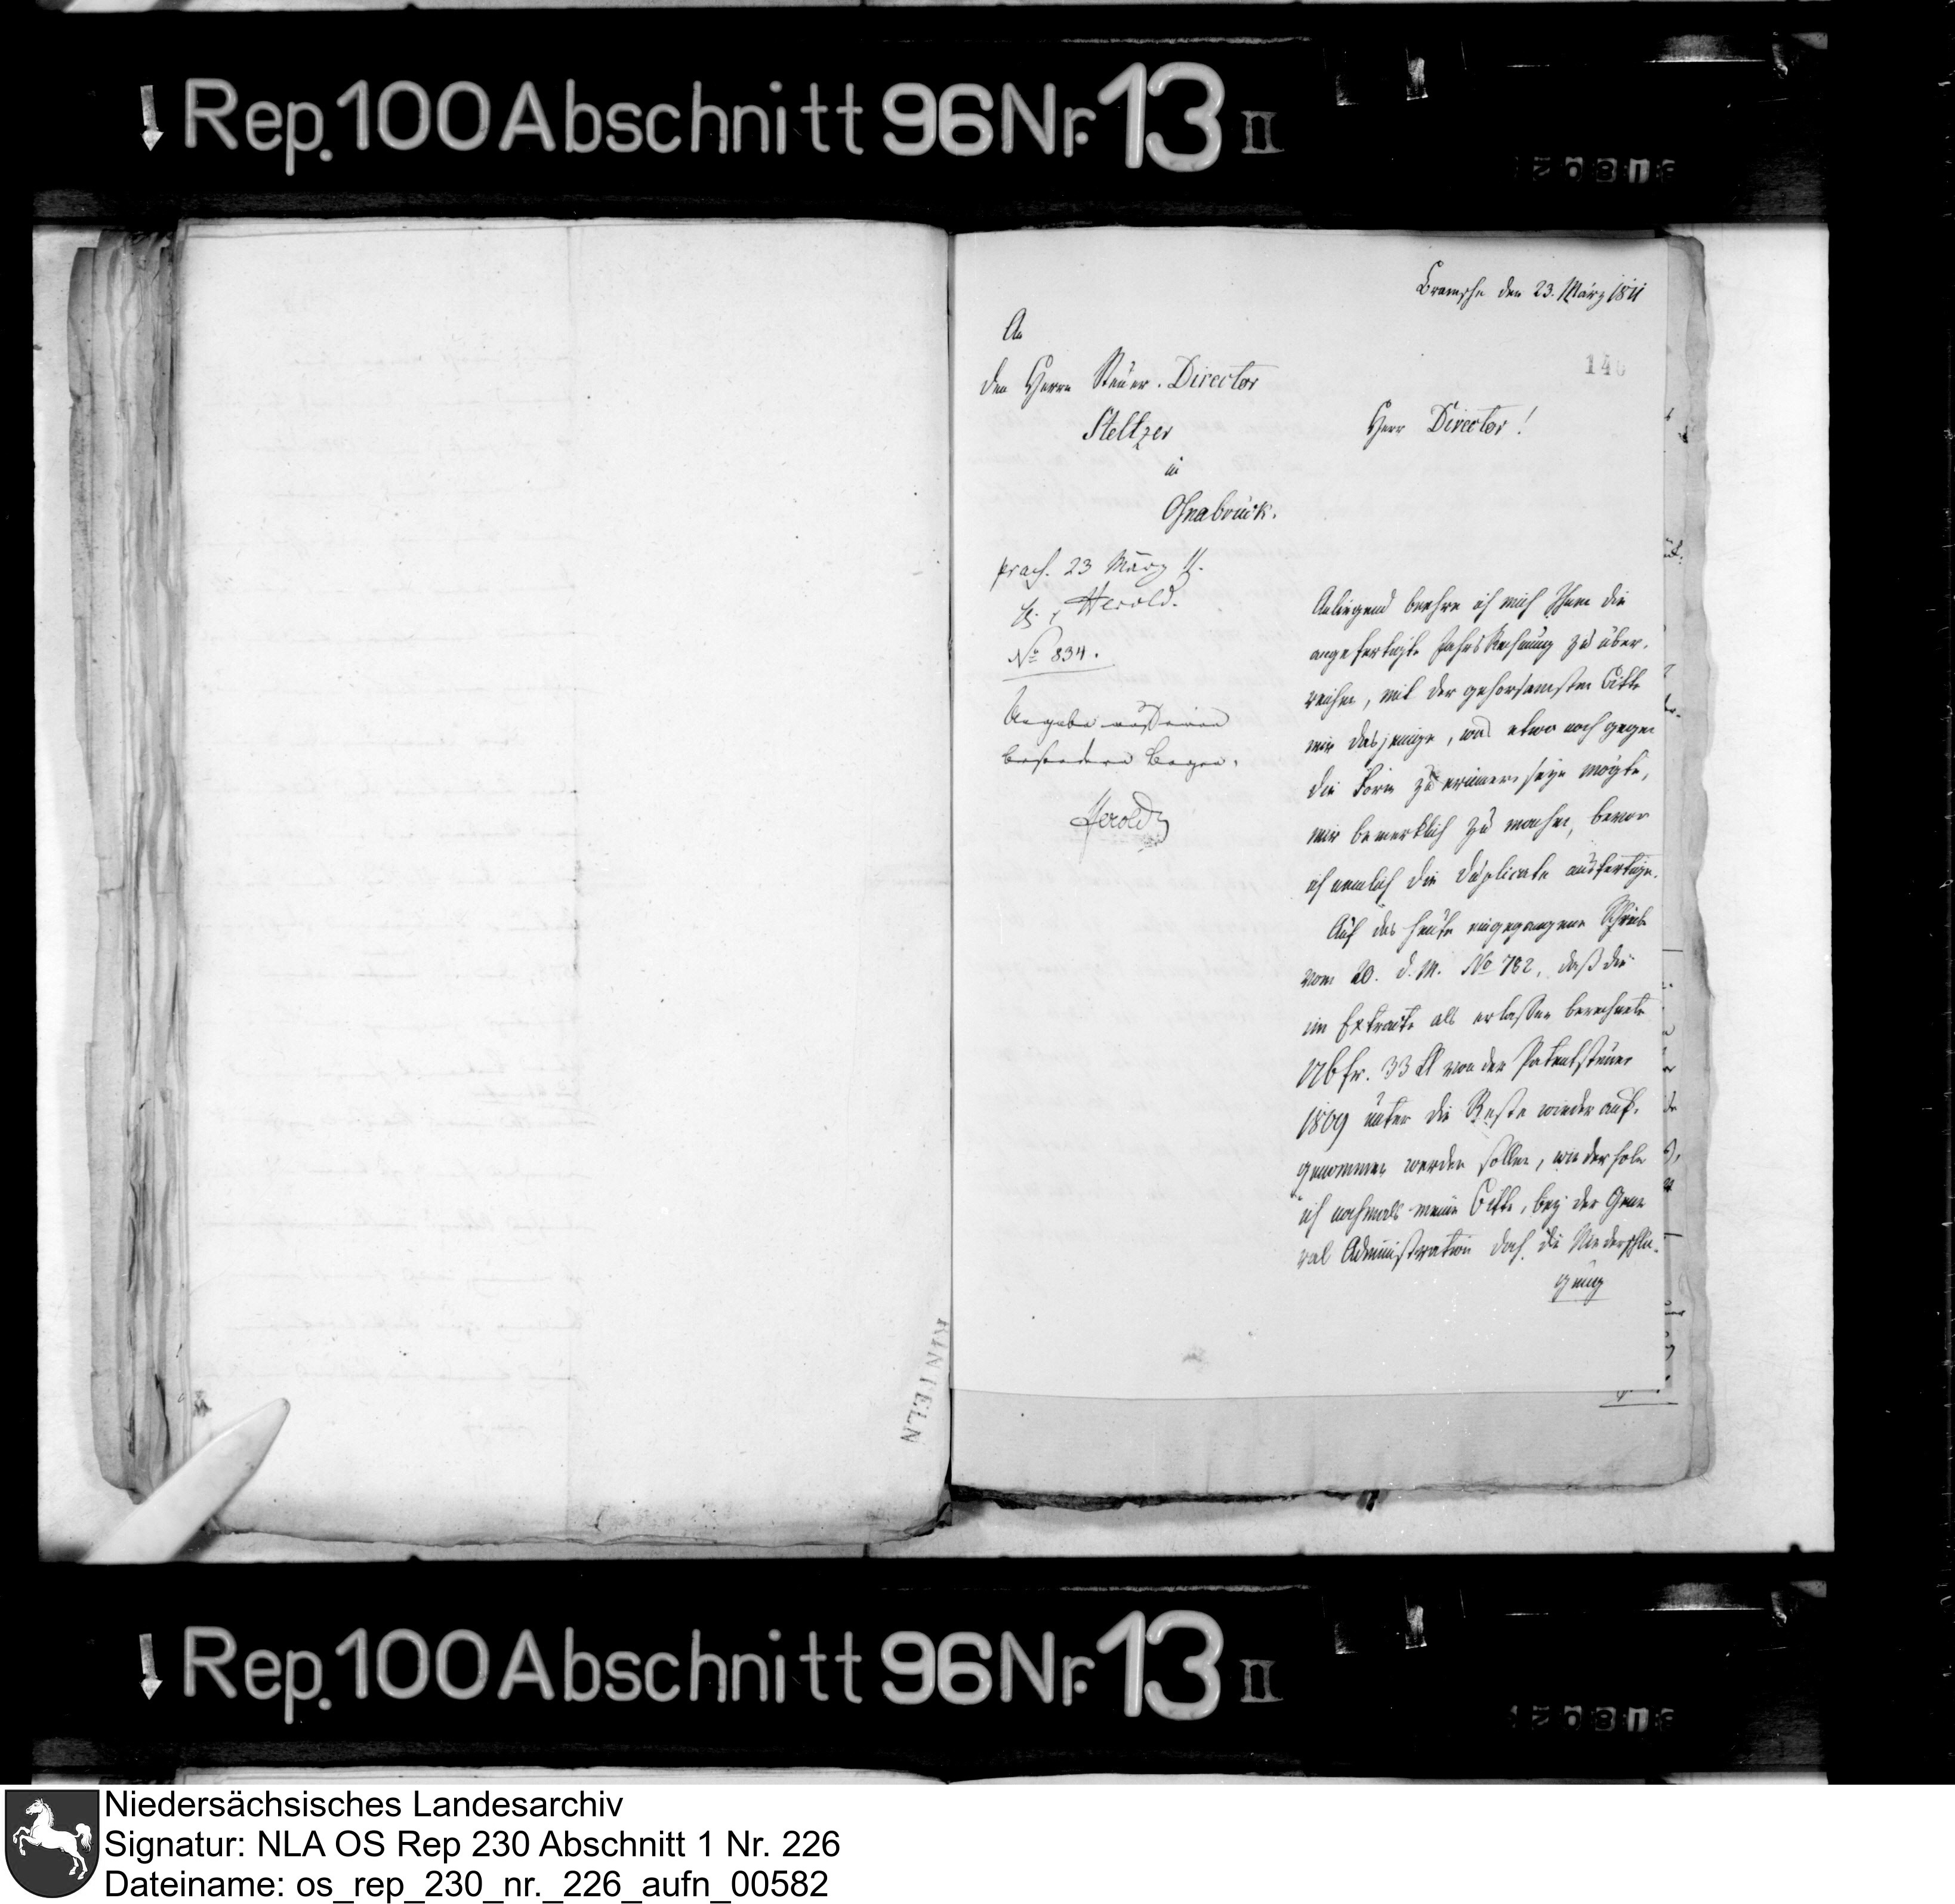 Rep. 100 Abschnitt 96 Nr. 13 II
Bramsche den 23. März 1811
140
An
den Herrn Steuer-Director
Steltzer
in
Osnabrück.
Herr Director!
praes. 23 März 11.
Herold.
No 834.
besondern Bogen.
Herold
Anliegend beehre ich mich Ihnen die
angefertigte Jahrs Rechnung zu über-
reichen, mit der gehorsamsten Bitte
mir dasjenige, was etwa noch gegen
die Form zu erinnern seyn mögte,
mir bemerklich zu machen, bevor
ich nemlich die Duplicate ausfertige.
Auf das heute eingegangene Schreib
vom 20. d. M. No 782, daß die
im Extracte als erlassen berechnete
fr. 33 Ct von der Patentsteuer
1809 unter die Reste wieder auf-
genommen werden sollen, wiederhole
ich nochmals meine Bitte, bey der Gene
ral Administration doch die Niederschla-
gung
RINTELN
Rep. 100 Abschnitt 96 Nr. 13 II
Niedersächsisches Landesarchiv
Signatur: NLA OS Rep 230 Abschnitt 1 Nr. 226
Dateiname: os_rep_230_nr._226_aufn_00582